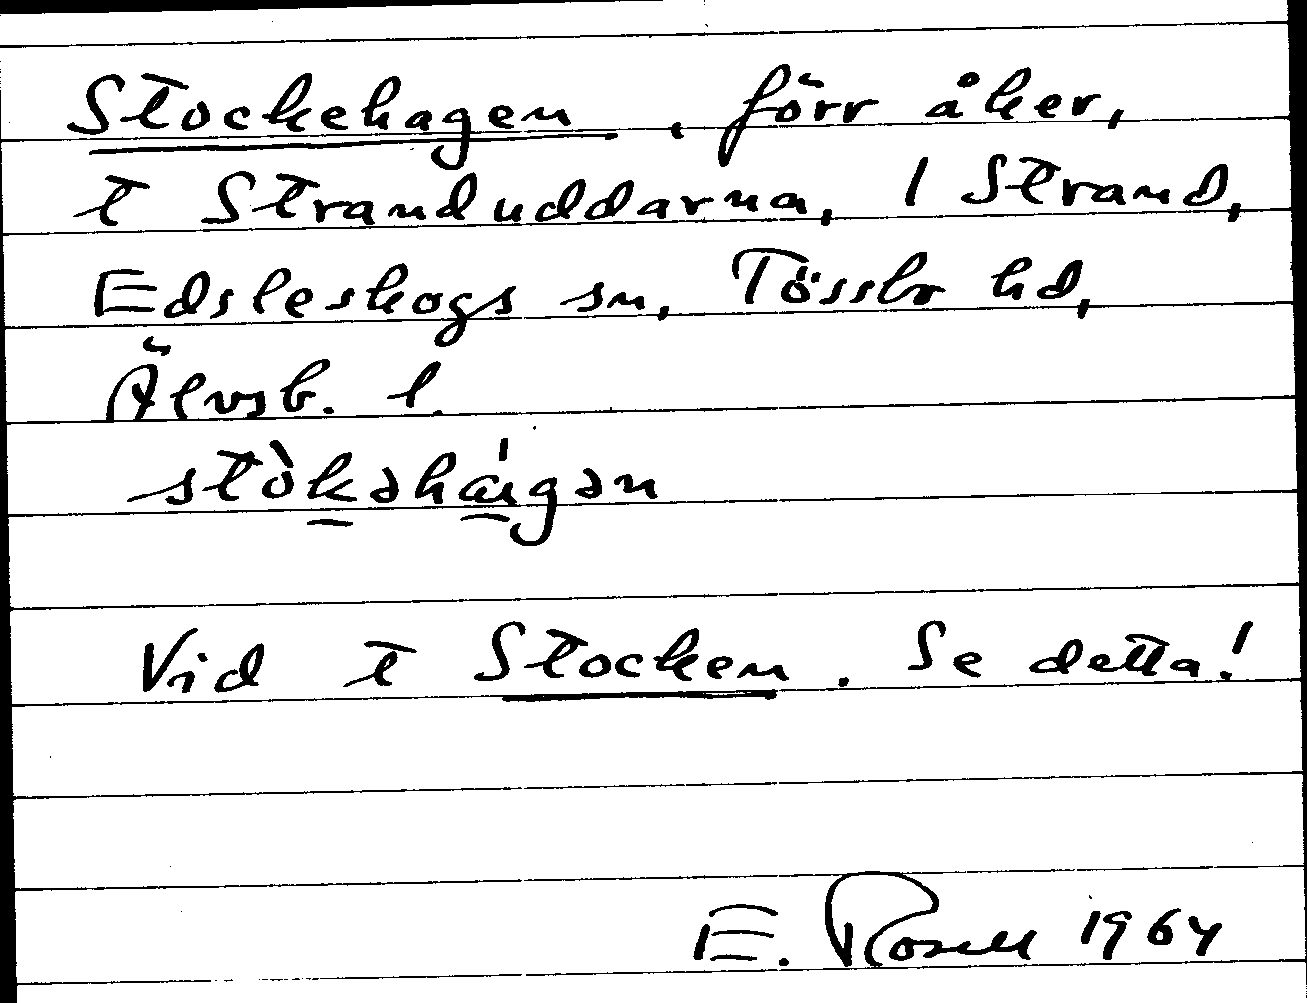 Stockehagen, förr åker,
t Stranduddarna, 1 Strand,
Edsleskogs sn, Tössbo hd,
Älvsb. l.
stòkəhá̱gən
Vid t Stocken. Se detta!
E. Rosell 1964